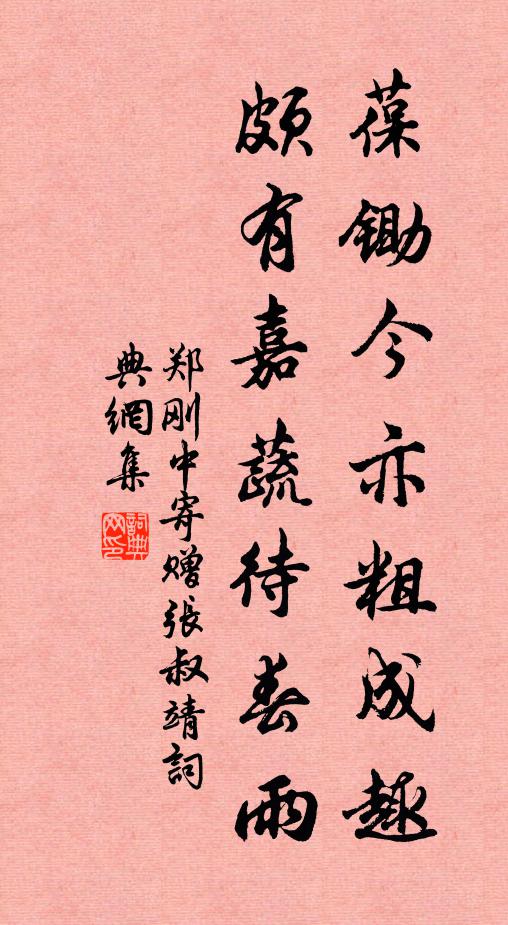 葆锄今亦粗成趣
颇有嘉蔬待春雨
郑刚中寄赠張叔靖詞
典網集
詞典网印